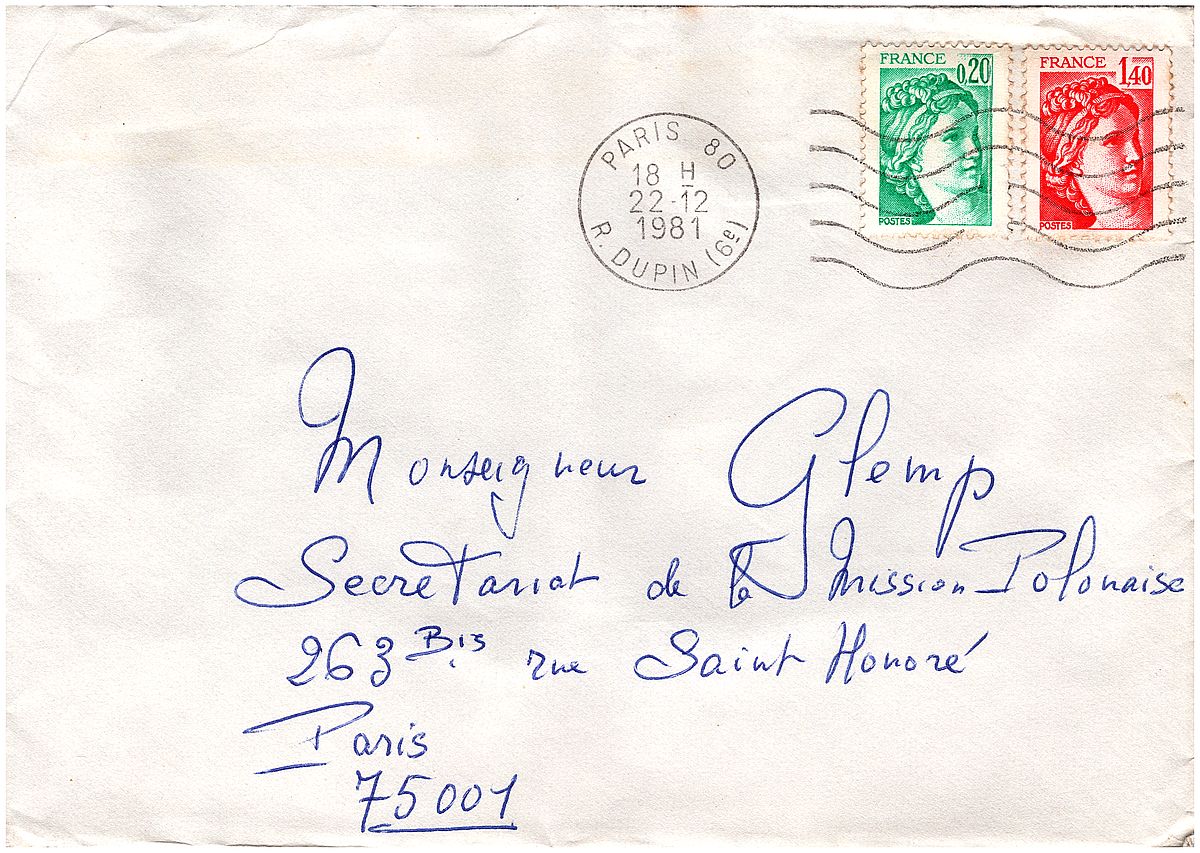 FRANCE 0,20
POSTES
FRANCE 1,40
POSTES
PARIS 80
18 H
22-12
1981
R. DUPIN (6e)
Monseigneur Glemp
Secretariat de la Mission Polonaise
263 Bis rue Saint Honoré
Paris
75001